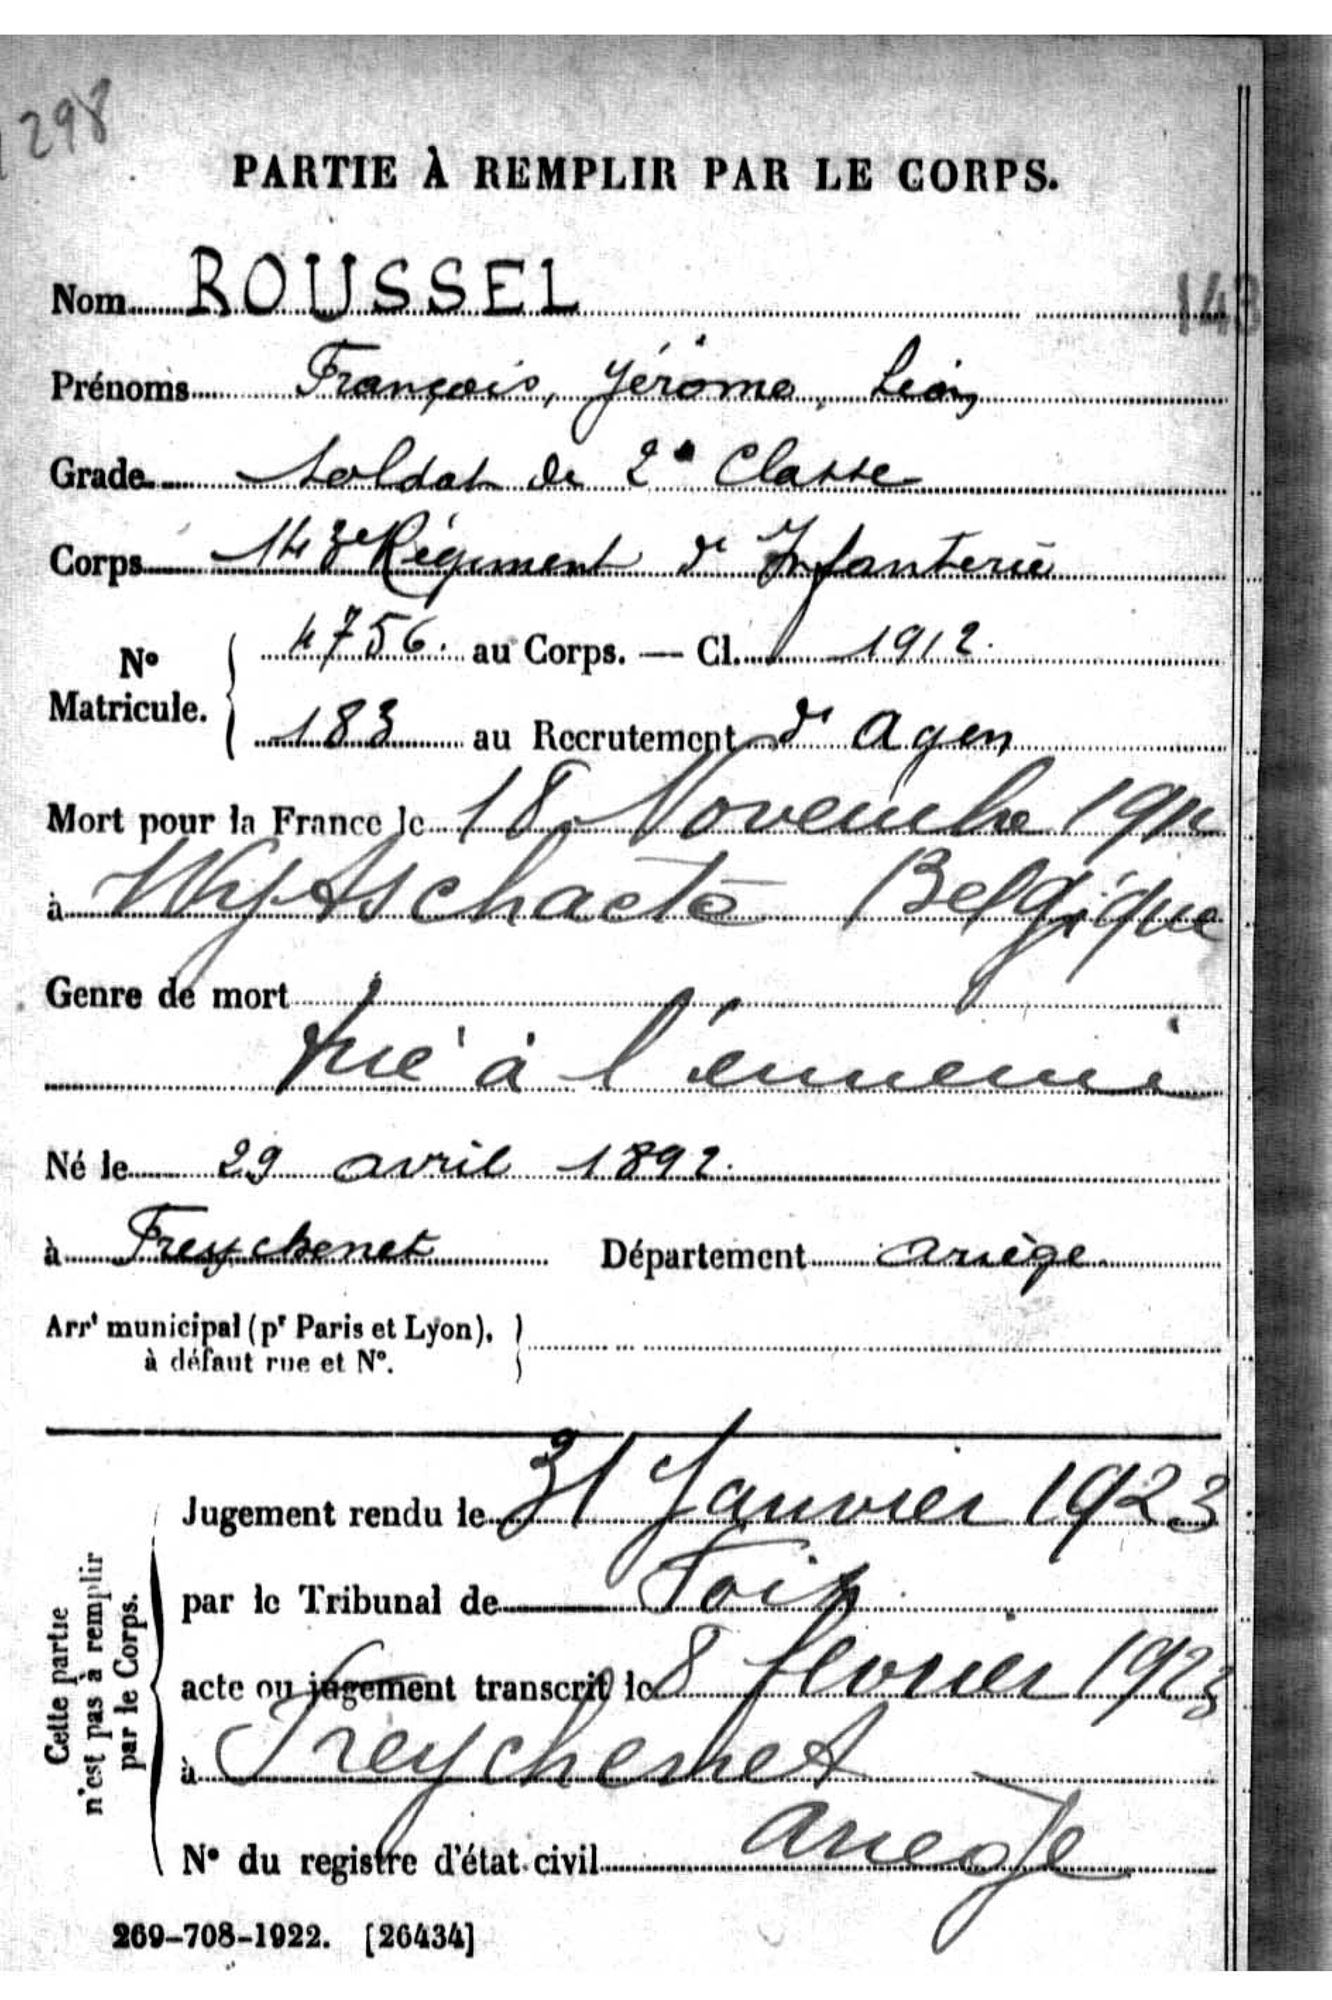 298
PARTIE À REMPLIR PAR LE CORPS.
Nom ROUSSEL
143
Prénoms François, Jérôme, Léon,
Grade Soldat de 2e Classe
Corps 143e Régiment d' Infanterie
No Matricule. { 4756. au Corps. — Cl. 1912.
183 au Recrutement d' Agen
Mort pour la France le 18 Novembre 1914
à Wytschaete Belgique
Genre de mort
tué à l'ennemi
Né le 29 avril 1892.
à Freychenet Département Ariège
Arrt municipal (pr Paris et Lyon), }
à défaut rue et No.
Cette partie
n'est pas à remplir
par le Corps.
Jugement rendu le 31 Janvier 1923
par le Tribunal de Foix
acte ou jugement transcrit le 8 février 1923
à Freychenet
Ariège
No du registre d'état civil
269-708-1922. [26434]